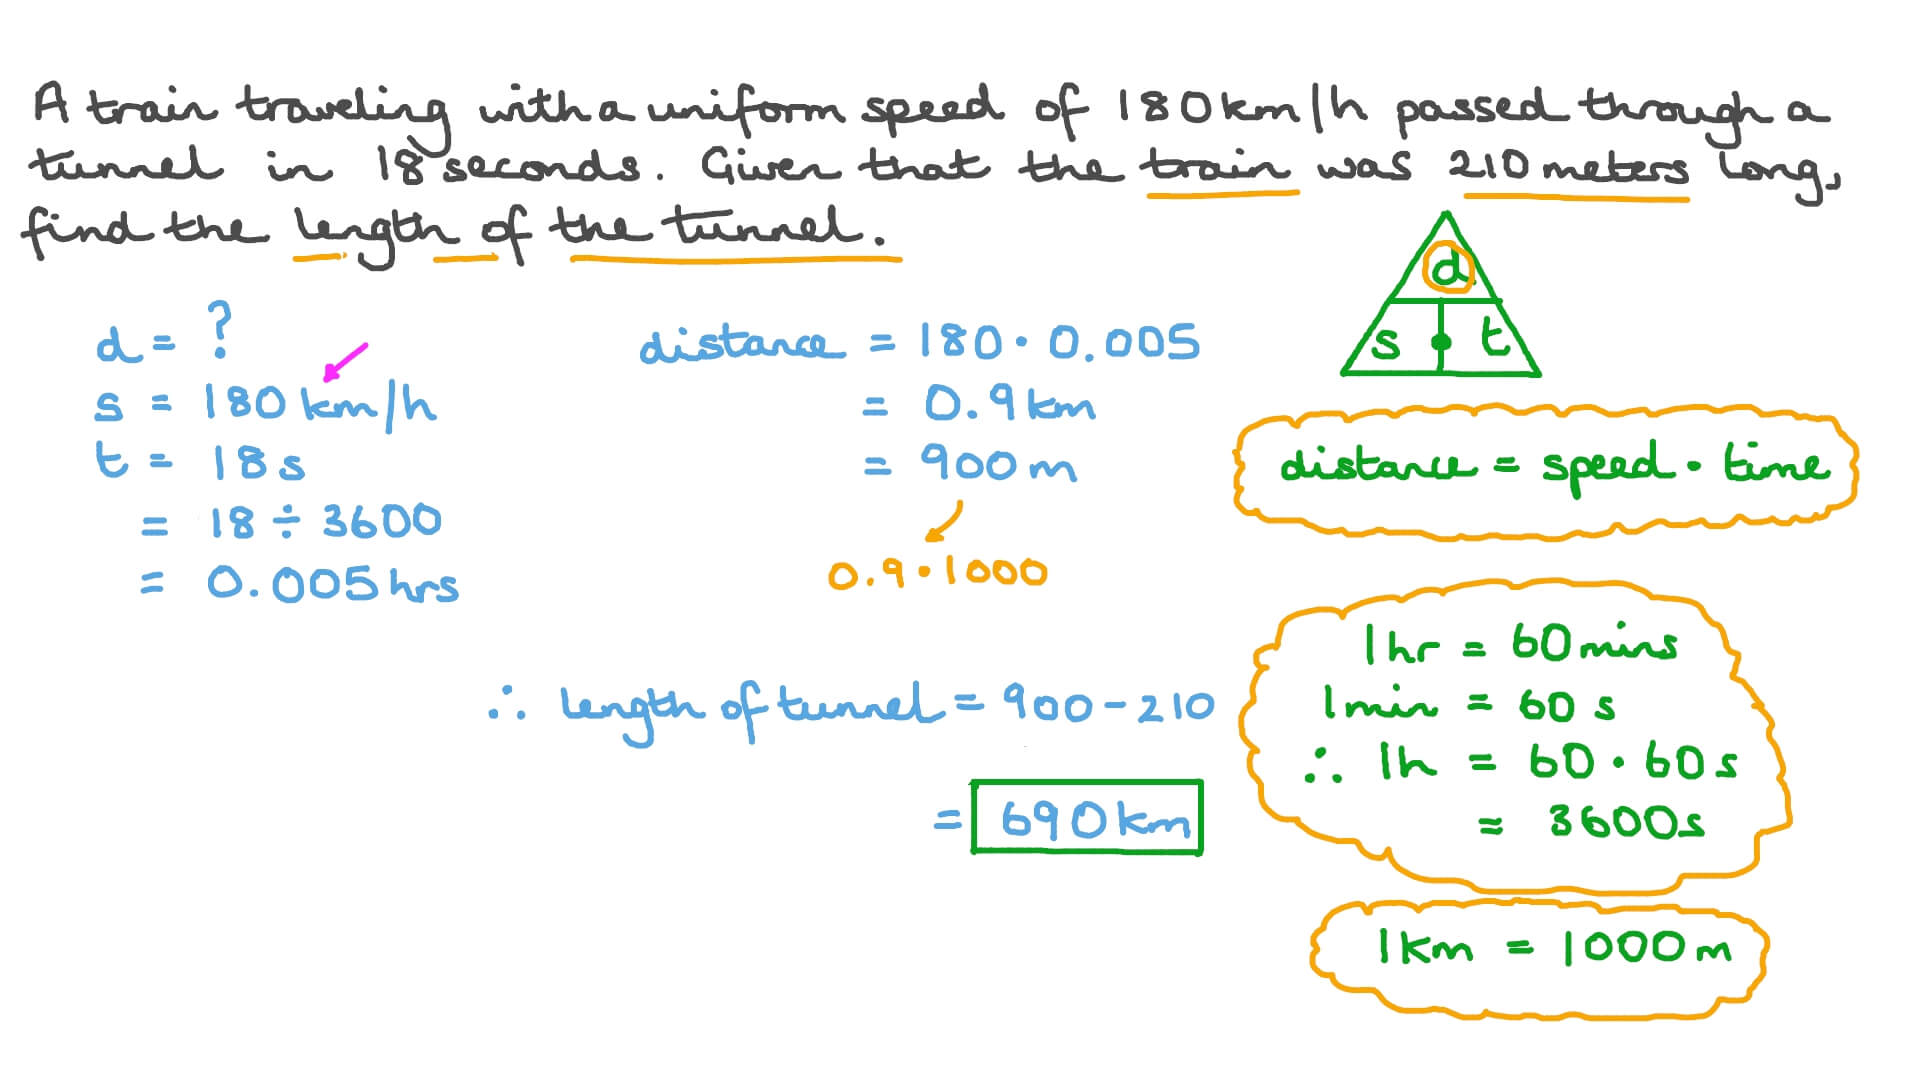 A train traveling with a uniform speed of 180km/h passed through a
tunnel in 18 seconds. Given that the train was 210 meters long,
find the length of the tunnel.
d = ?
s = 180 km/h
t = 18 s
= 18 ÷ 3600
= 0.005 hrs
distance = 180 · 0.005
= 0.9 km
= 900 m
0.9 · 1000
∴ length of tunnel = 900 - 210
= 690 km
d
s t
distance = speed · time
1hr = 60 mins
1min = 60 s
∴ 1h = 60 · 60 s
= 3600s
1km = 1000 m